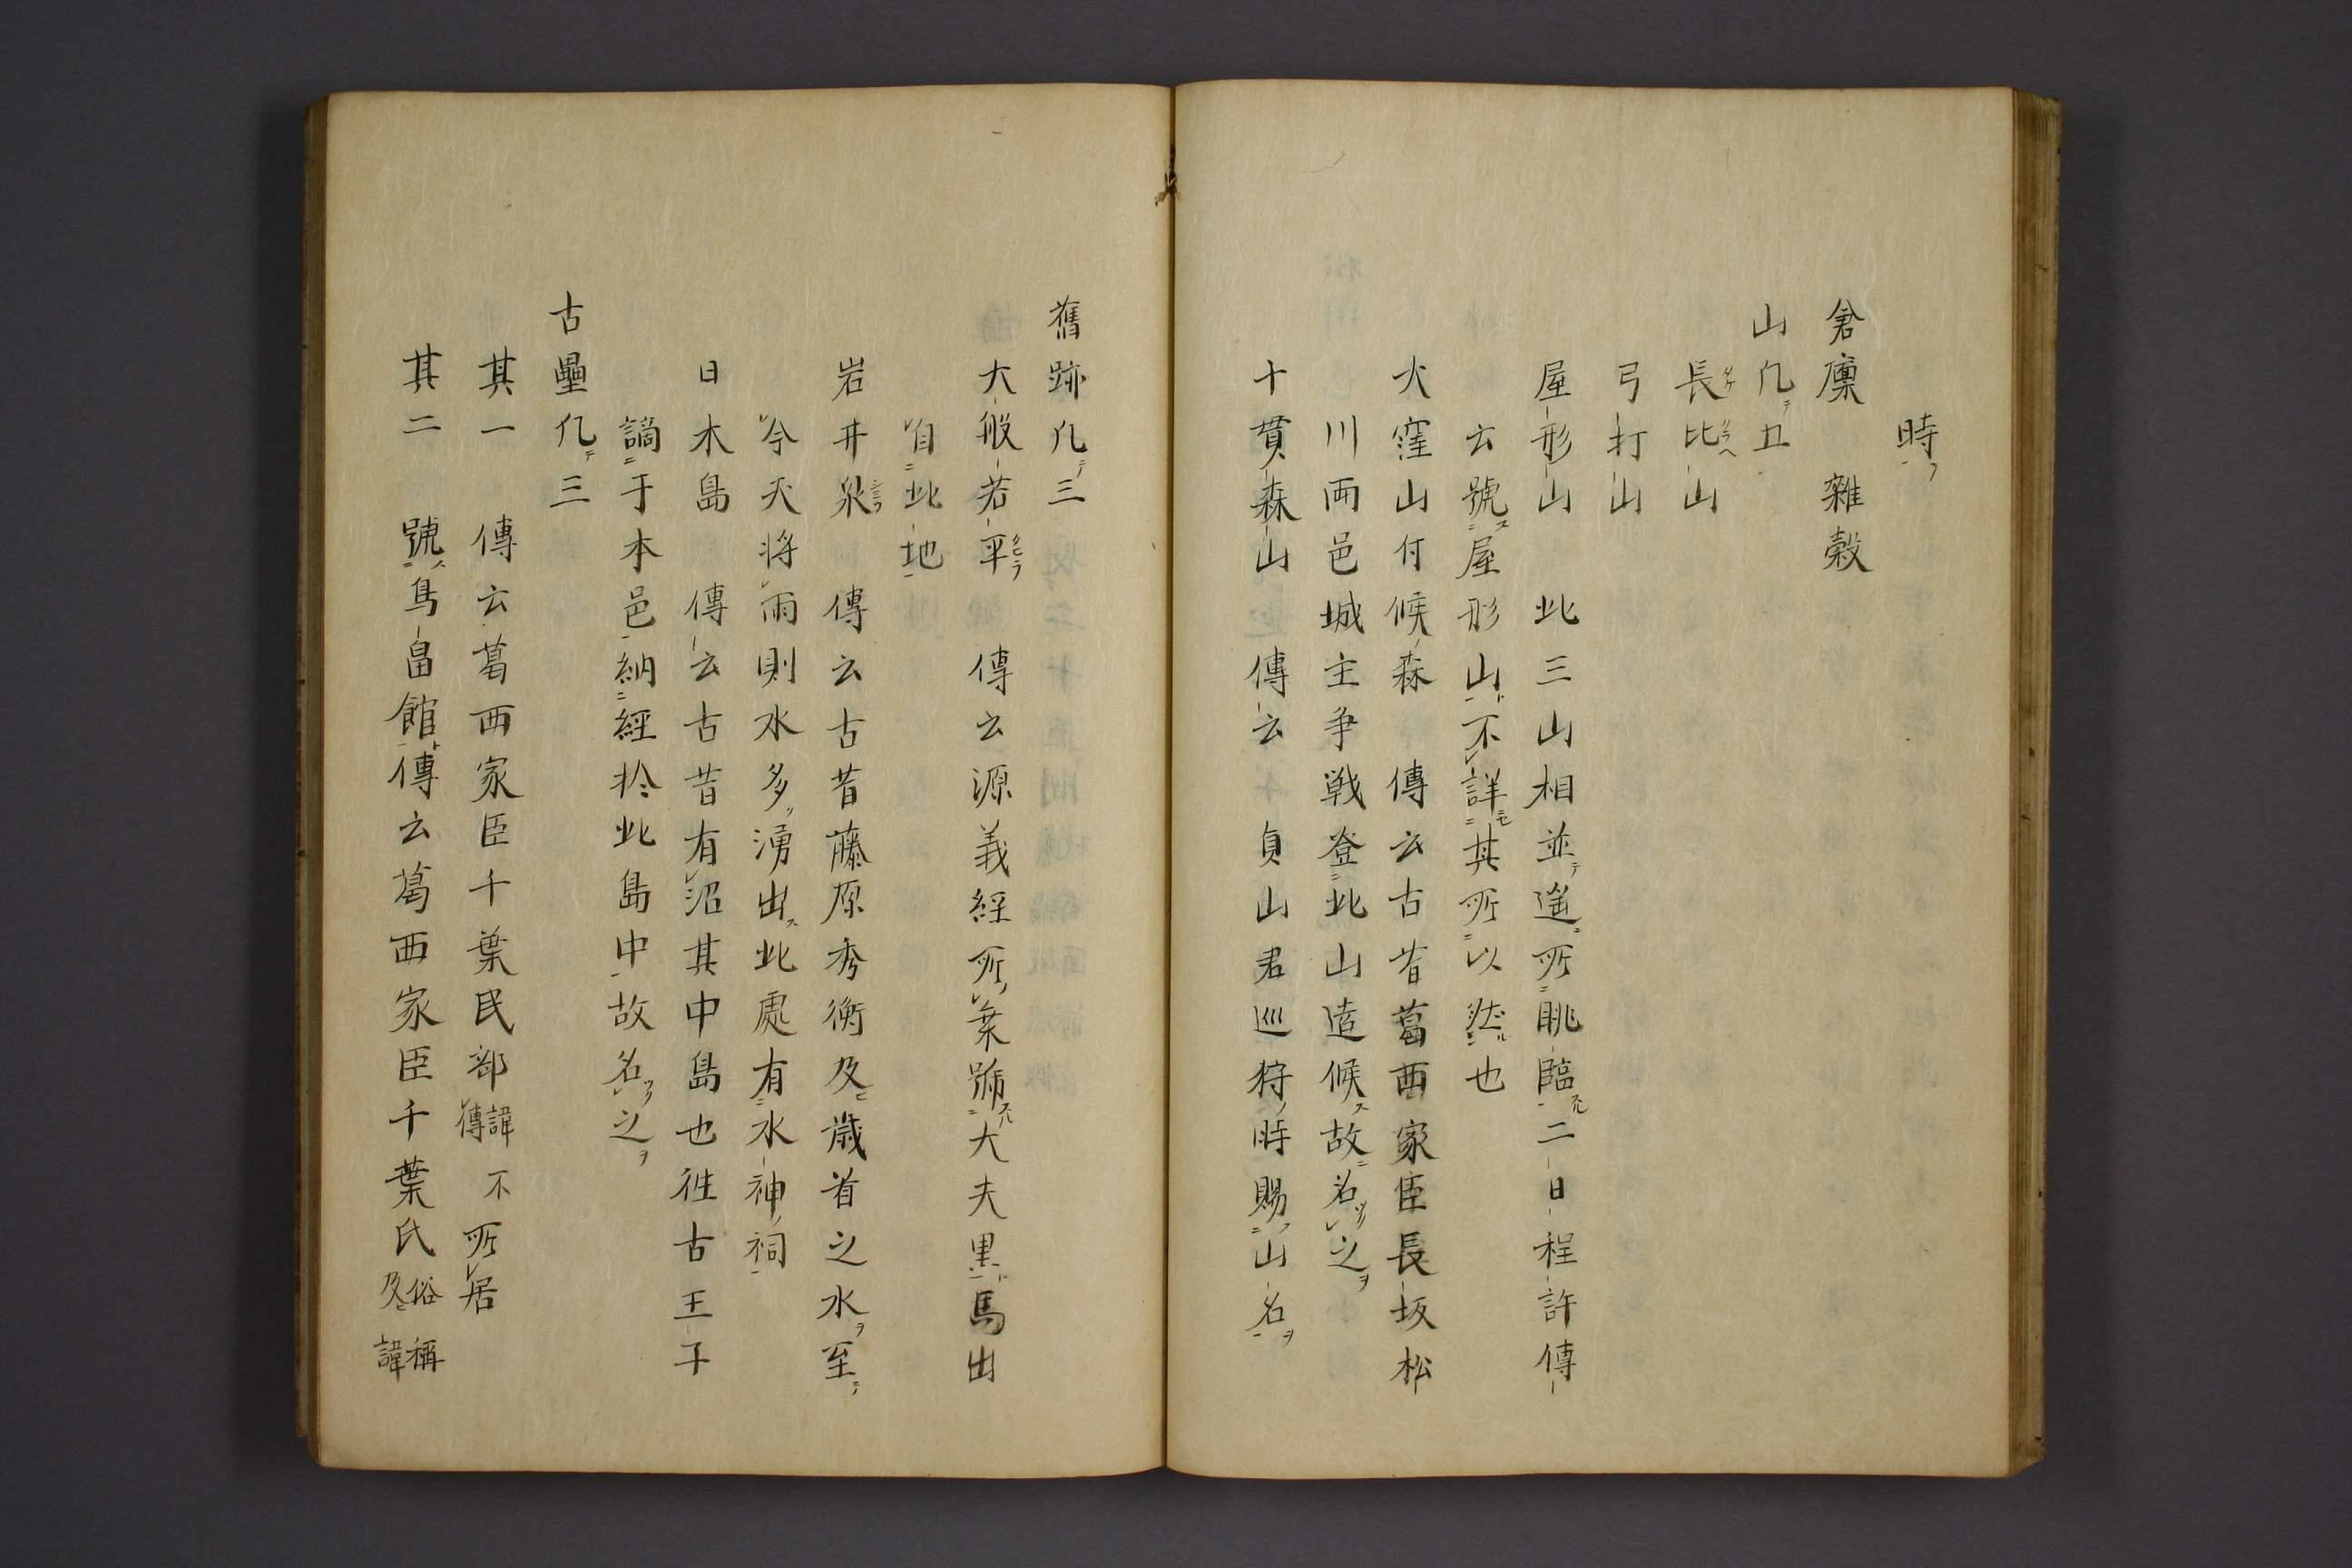 時
倉廩 雜穀
山凡五
長比山
弓打山
屋形山 此三山相並遥所眺臨二日程許傳
云號屋形山不詳其所以然也
大窪山付候森 傳云古昔葛西家臣長坂松
川両邑城主争戦登此山遠候故名之
十貫森山 傳云 貞山君巡狩時賜山名
舊跡凡三
大般若平 傳云源義經所乗號大夫黒馬出
自此地
岩井泉 傳云古昔藤原秀衡及歳首之水至
今天将雨則水多湧出此處有水神祠
日木島 傳云古昔有沼其中島也往古王子
謫于本邑納經於此島中故名之
古壘凡三
其一 傳云葛西家臣千葉民部諱不傳所居
其二 號鳥畠館傳云葛西家臣千葉氏俗稱及諱